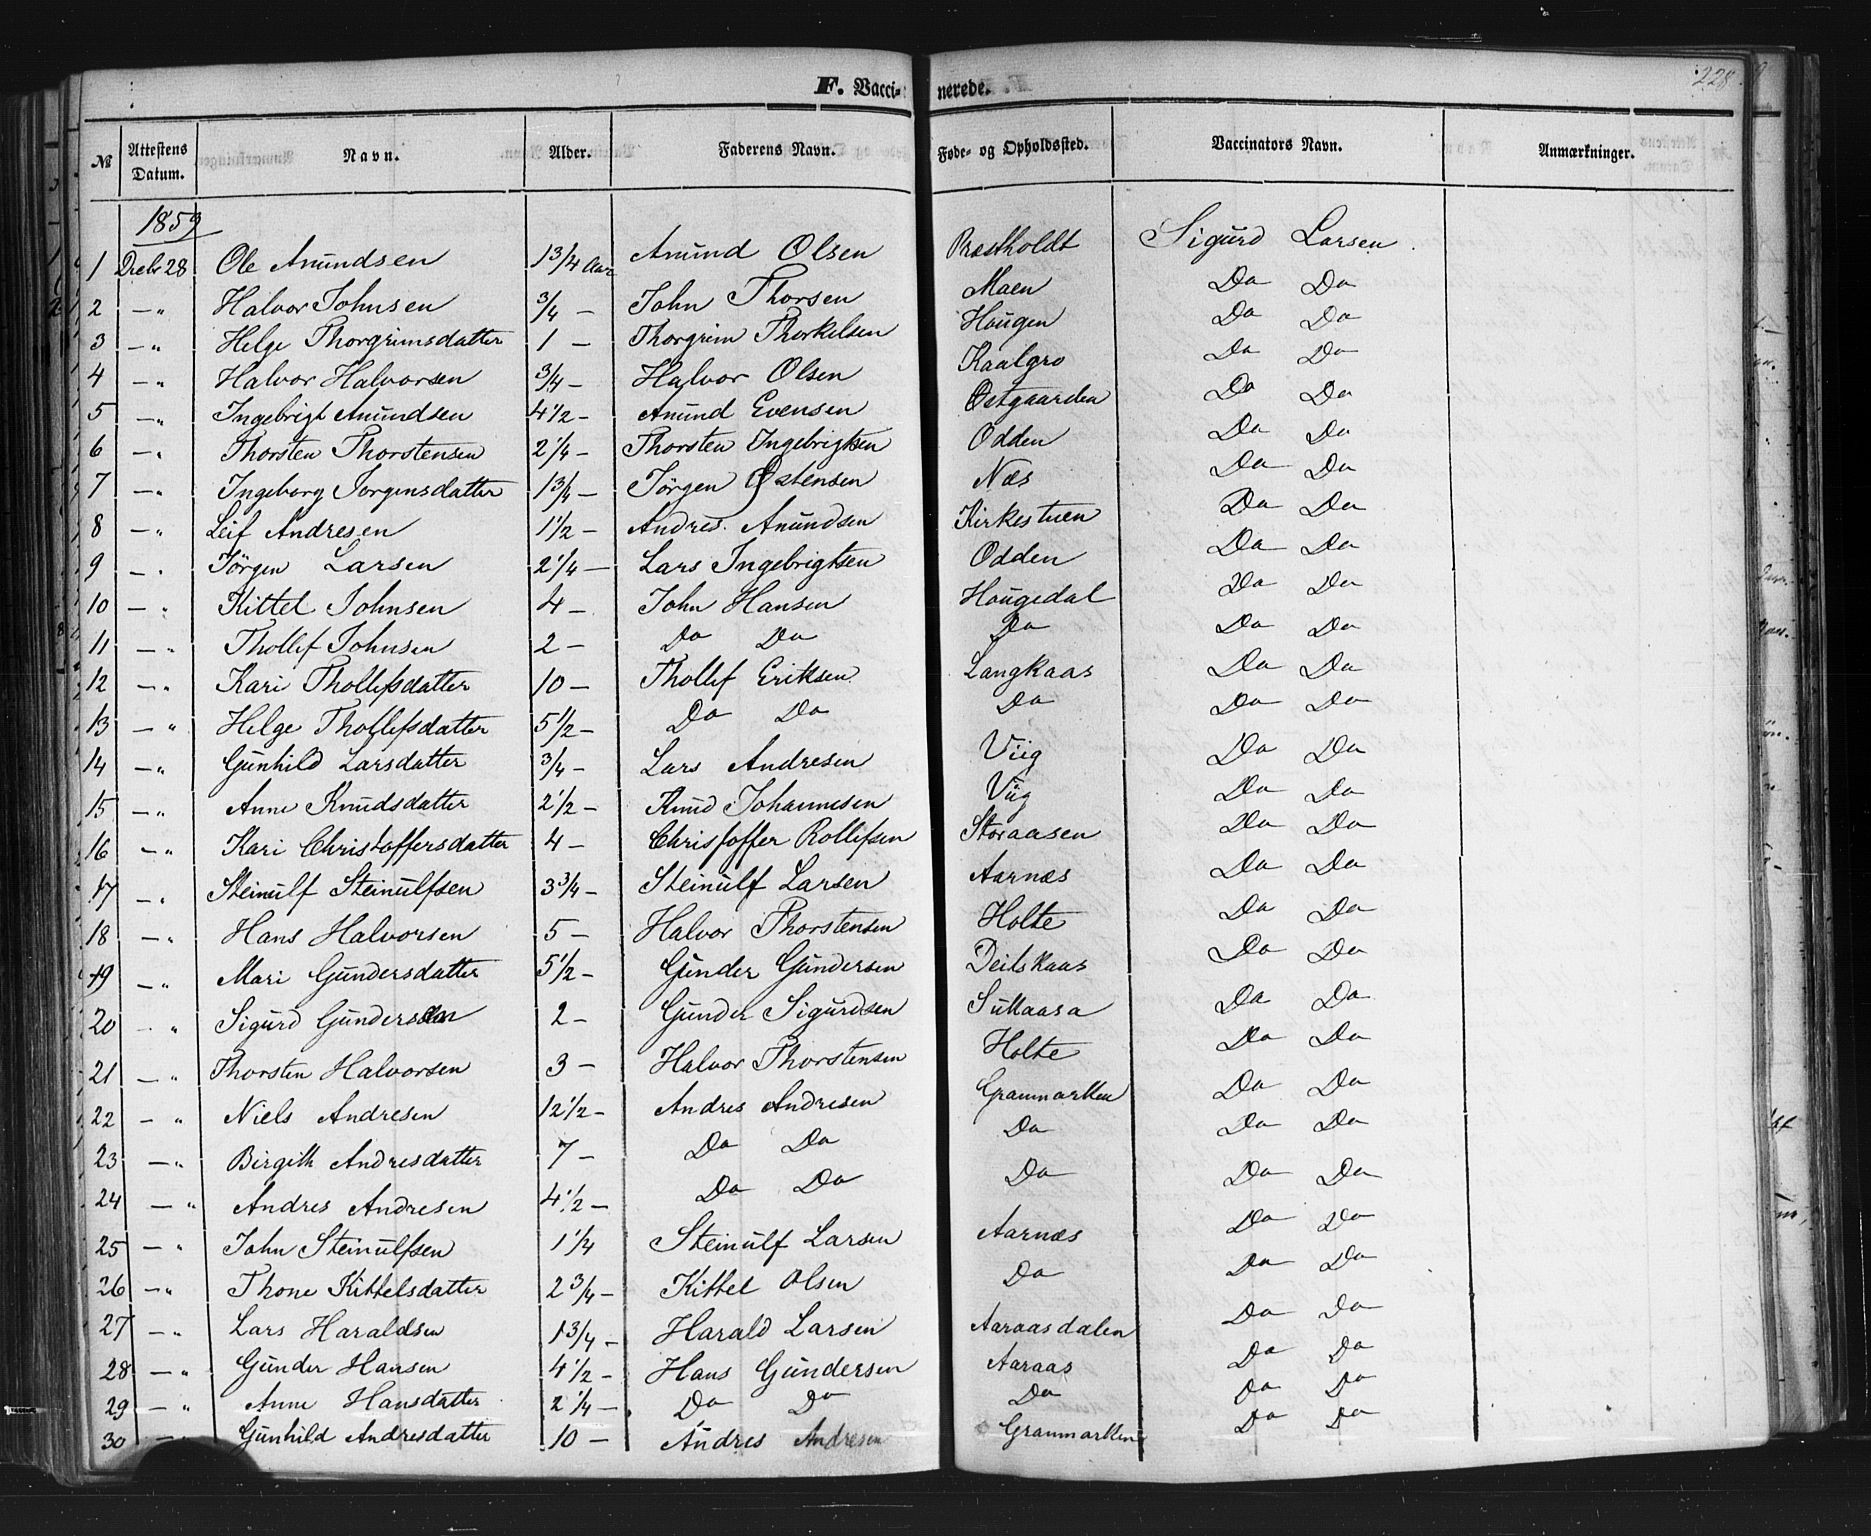 228
F. Vacci- nerede.
№ Attestens Datum. Navn. Alder. Faderens Navn. Føde- og Opholdssted. Vaccinators Navn. Anmærkninger.
1859
1 Decbr 28 Ole Anundsen 1 3/4 Aar Anund Olsen Præstholdt Sigurd Larsen
2 — „ Halvor Johnsen 3/4 — John Thorsen Moen Do Do
3 — „ Helge Thorgrimsdatter 1 — Thorgrim Thorkelsen Haugen Do Do
4 — „ Halvor Halvorsen 3/4 — Halvor Olsen Kaalgro Do Do
5 — „ Ingebrigt Anundsen 4 1/2 — Anund Evensen Østgaarden Do Do
6 — „ Thorsten Thorstensen 2 1/4 — Thorsten Ingebrigtsen Odden Do Do
7 — „ Ingeborg Jorgensdatter 1 3/4 — Jörgen Østensen Næs Do Do
8 — „ Leif Andresen 1 1/2 — Andres Anundsen Kirkestuen Do Do
9 — „ Jörgen Larsen 2 1/4 — Lars Ingebrigtsen Odden Do Do
10 — „ Kittel Johnsen 4 — John Hansen Haugedal Do Do
11 — „ Thollef Johnsen 2 — Do Do Do Do Do
12 — „ Kari Thollefsdatter 10 — Thollef Eriksen Langkaas Do Do
13 — „ Helge Thollefsdatter 5 1/2 — Do Do Do Do Do
14 — „ Gunhild Larsdatter 3/4 — Lars Andresen Viig Do Do
15 — „ Anne Knudsdatter 2 1/2 — Knud Johannesen Viig Do Do
16 — „ Kari Christoffersdatter 4 — Christoffer Rollefsen Storaasen Do Do
17 — „ Steinulf Steinulfsen 3 3/4 — Steinulf Larsen Aarnæs Do Do
18 — „ Hans Halvorsen 5 — Halvor Thorstensen Holte Do Do
19 — „ Mari Gundersdatter 5 1/2 — Gunder Gundersen Deilskaas Do Do
20 — „ Sigurd Gundersen 2 — Gunder Sigurdsen Sullaasa Do Do
21 — „ Thorsten Halvorsen 3 — Halvor Thorstensen Holte Do Do
22 — „ Niels Andresen 12 1/2 — Andres Andresen Granmarken Do Do
23 — „ Birgith Andresdatter 7 — Do Do Do Do Do
24 — „ Andres Andresen 4 1/2 — Do Do Do Do Do
25 — „ John Steinulfsen 1 1/4 Steinulf Larsen Aarnæs Do Do
26 — „ Thone Kittelsdatter 2 3/4 — Kittel Olsen Do Do Do
27 — „ Lars Haraldsen 1 3/4 — Harald Larsen Aaraasdalen Do Do
28 — „ Gunder Hansen 4 1/2 — Hans Gundersen Aaraas Do Do
29 — „ Anne Hansdatter 2 1/4 — Do Do Do Do Do
30 — „ Gunhild Andresdatter 10 — Andres Andresen Granmarken Do Do